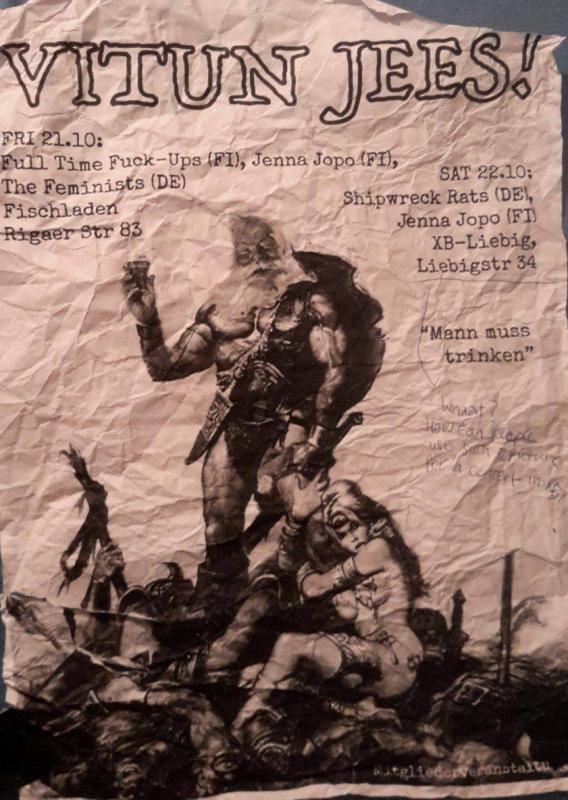 VITUN JEES!
FRI 21.10:
Full Time Fuck-Ups (FI), Jenna Jopo (FI),
The Feminists (DE)
Fischladen
Rigaer Str 83
SAT 22.10:
Shipwreck Rats (DE),
Jenna Jopo (FI)
XB-Liebig,
Liebigstr 34
"Mann muss
trinken"
Whaat?
How can people
use such a picture
for a concert in
Mitgliederveranstaltu